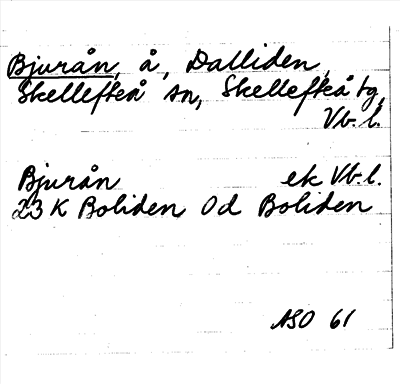 Bjurån, å, Dalliden,
Skellefteå sn, Skellefteå tg,
Vb.l.
Bjurån ek Vb.l.
23 K Boliden 0d Boliden
ASO 61